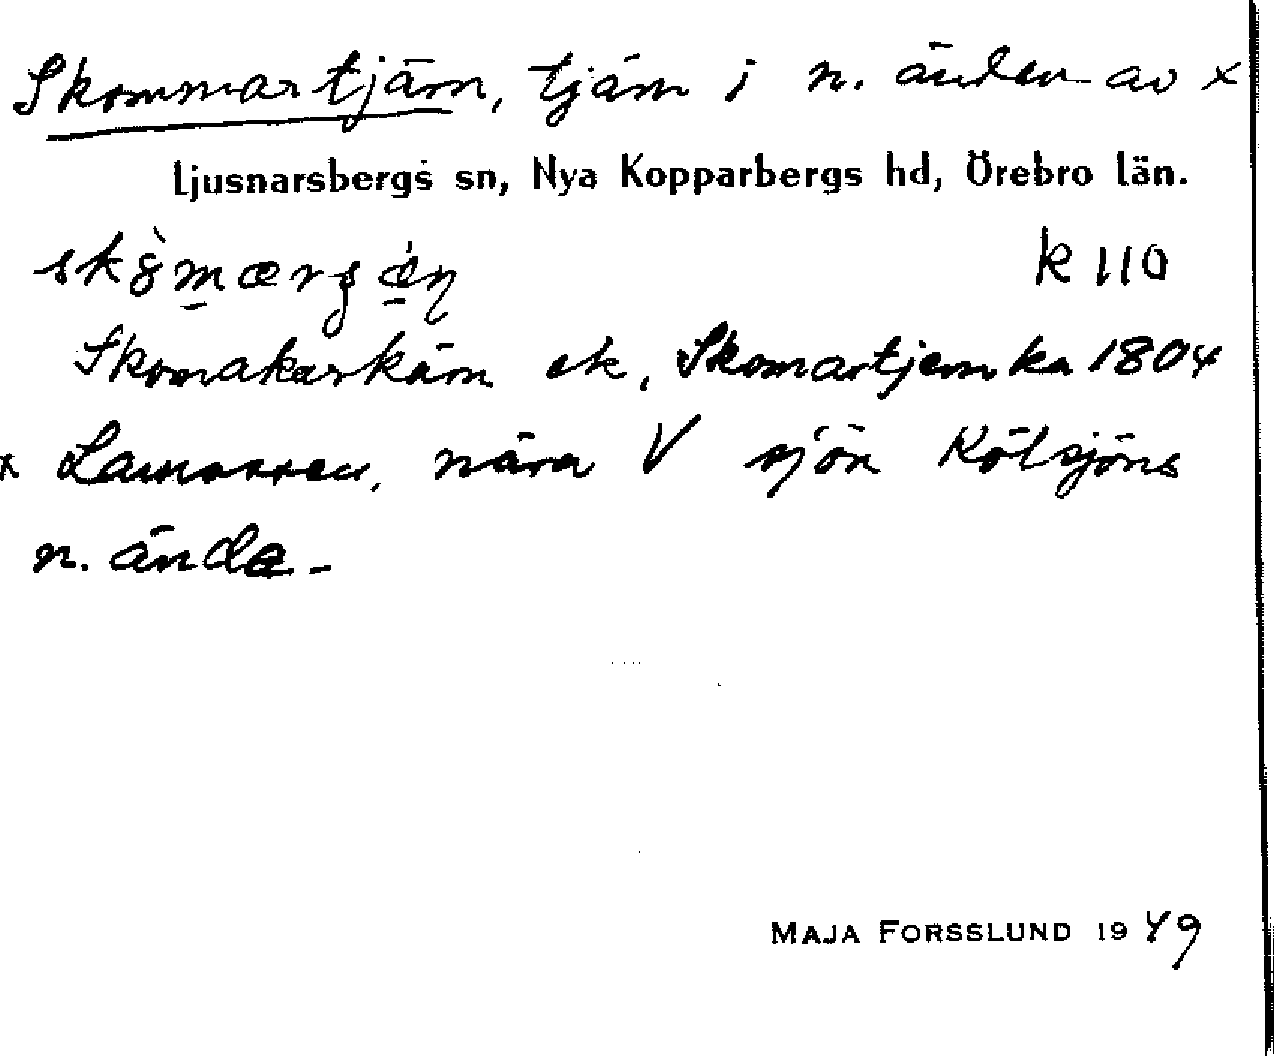 Skommartjärn, tjärn i n. änden av x
Ljusnarsbergs sn, Nya Kopparbergs hd, Örebro län.
k 110
Skomakarkärn ek, Skomartjern ka 1804
x nära V sjön Kölsjöns
n. ända-
MAJA FORSSLUND 1949